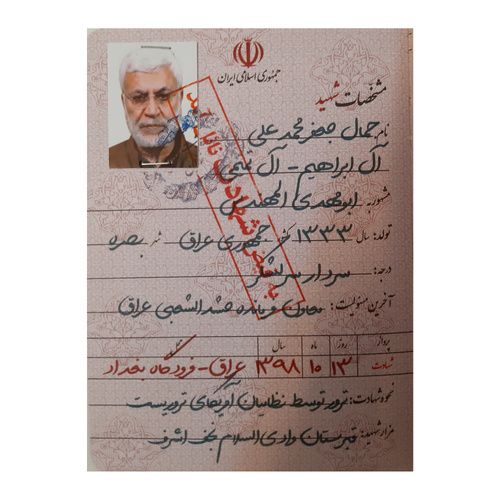 جمهوری اسلامی ایران
مشخصات شهید
نام جمال جعفر محمد علی
آل ابراهیم - آل تمیمی
مشهور به: ابومهدی المهندس
تولد: سال ۱۳۳۳ کشور جمهوری عراق شهر بصره
درجه: سردار سرلشگر
آخرین مسئولیت: معاون فرمانده حشد الشعبی عراق
پرواز روز ماه سال
شهادت ۱۳ ۱۰ ۱۳۹۸ عراق - فرودگاه بغداد
نحوه شهادت: ترور توسط نظامیان آمریکای تروریست
مزار شهید: قبرستان وادی السلام نجف اشرف